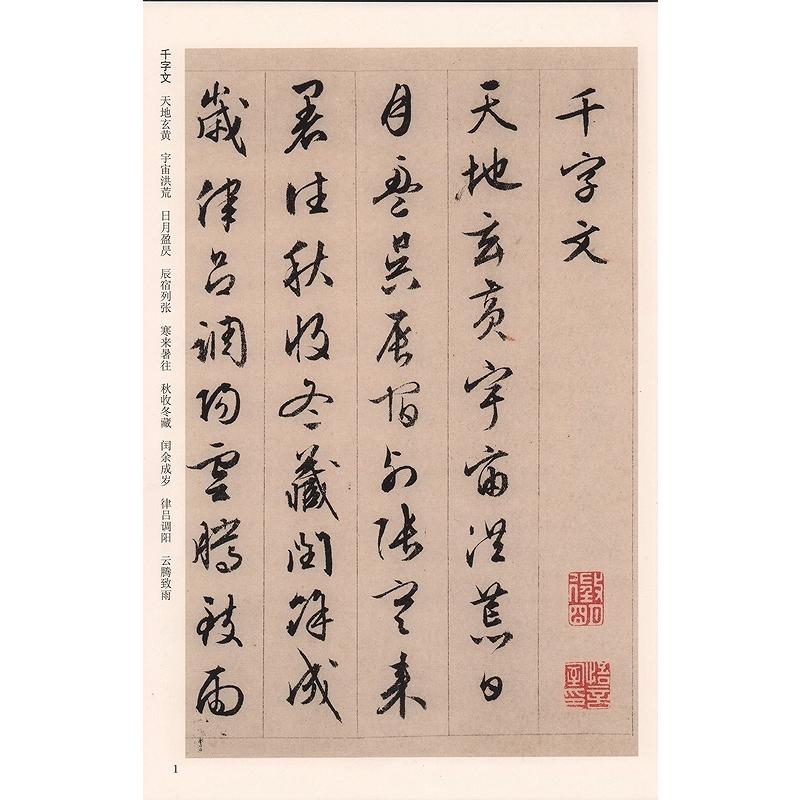 千字文
天地玄黄宇宙洪荒日
月盈昃辰宿列張寒来
暑往秋收冬藏閏餘成
歲律呂調陽雲騰致雨
千字文 天地玄黄 宇宙洪荒 日月盈昃 辰宿列张 寒来暑往 秋收冬藏 闰余成岁 律吕调阳 云腾致雨
1